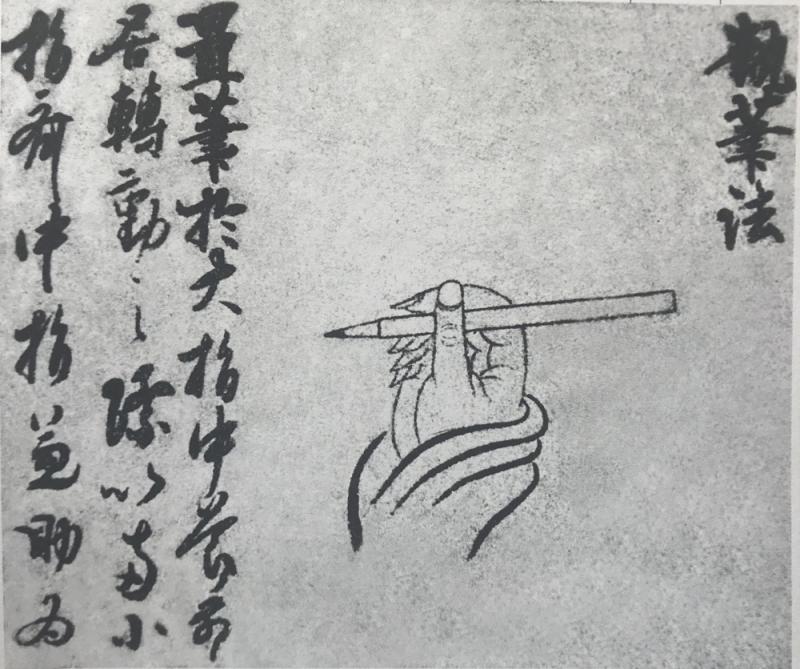 執筆法
置筆於大指中節前
居轉動之際以兩小
指齊中指兼助為